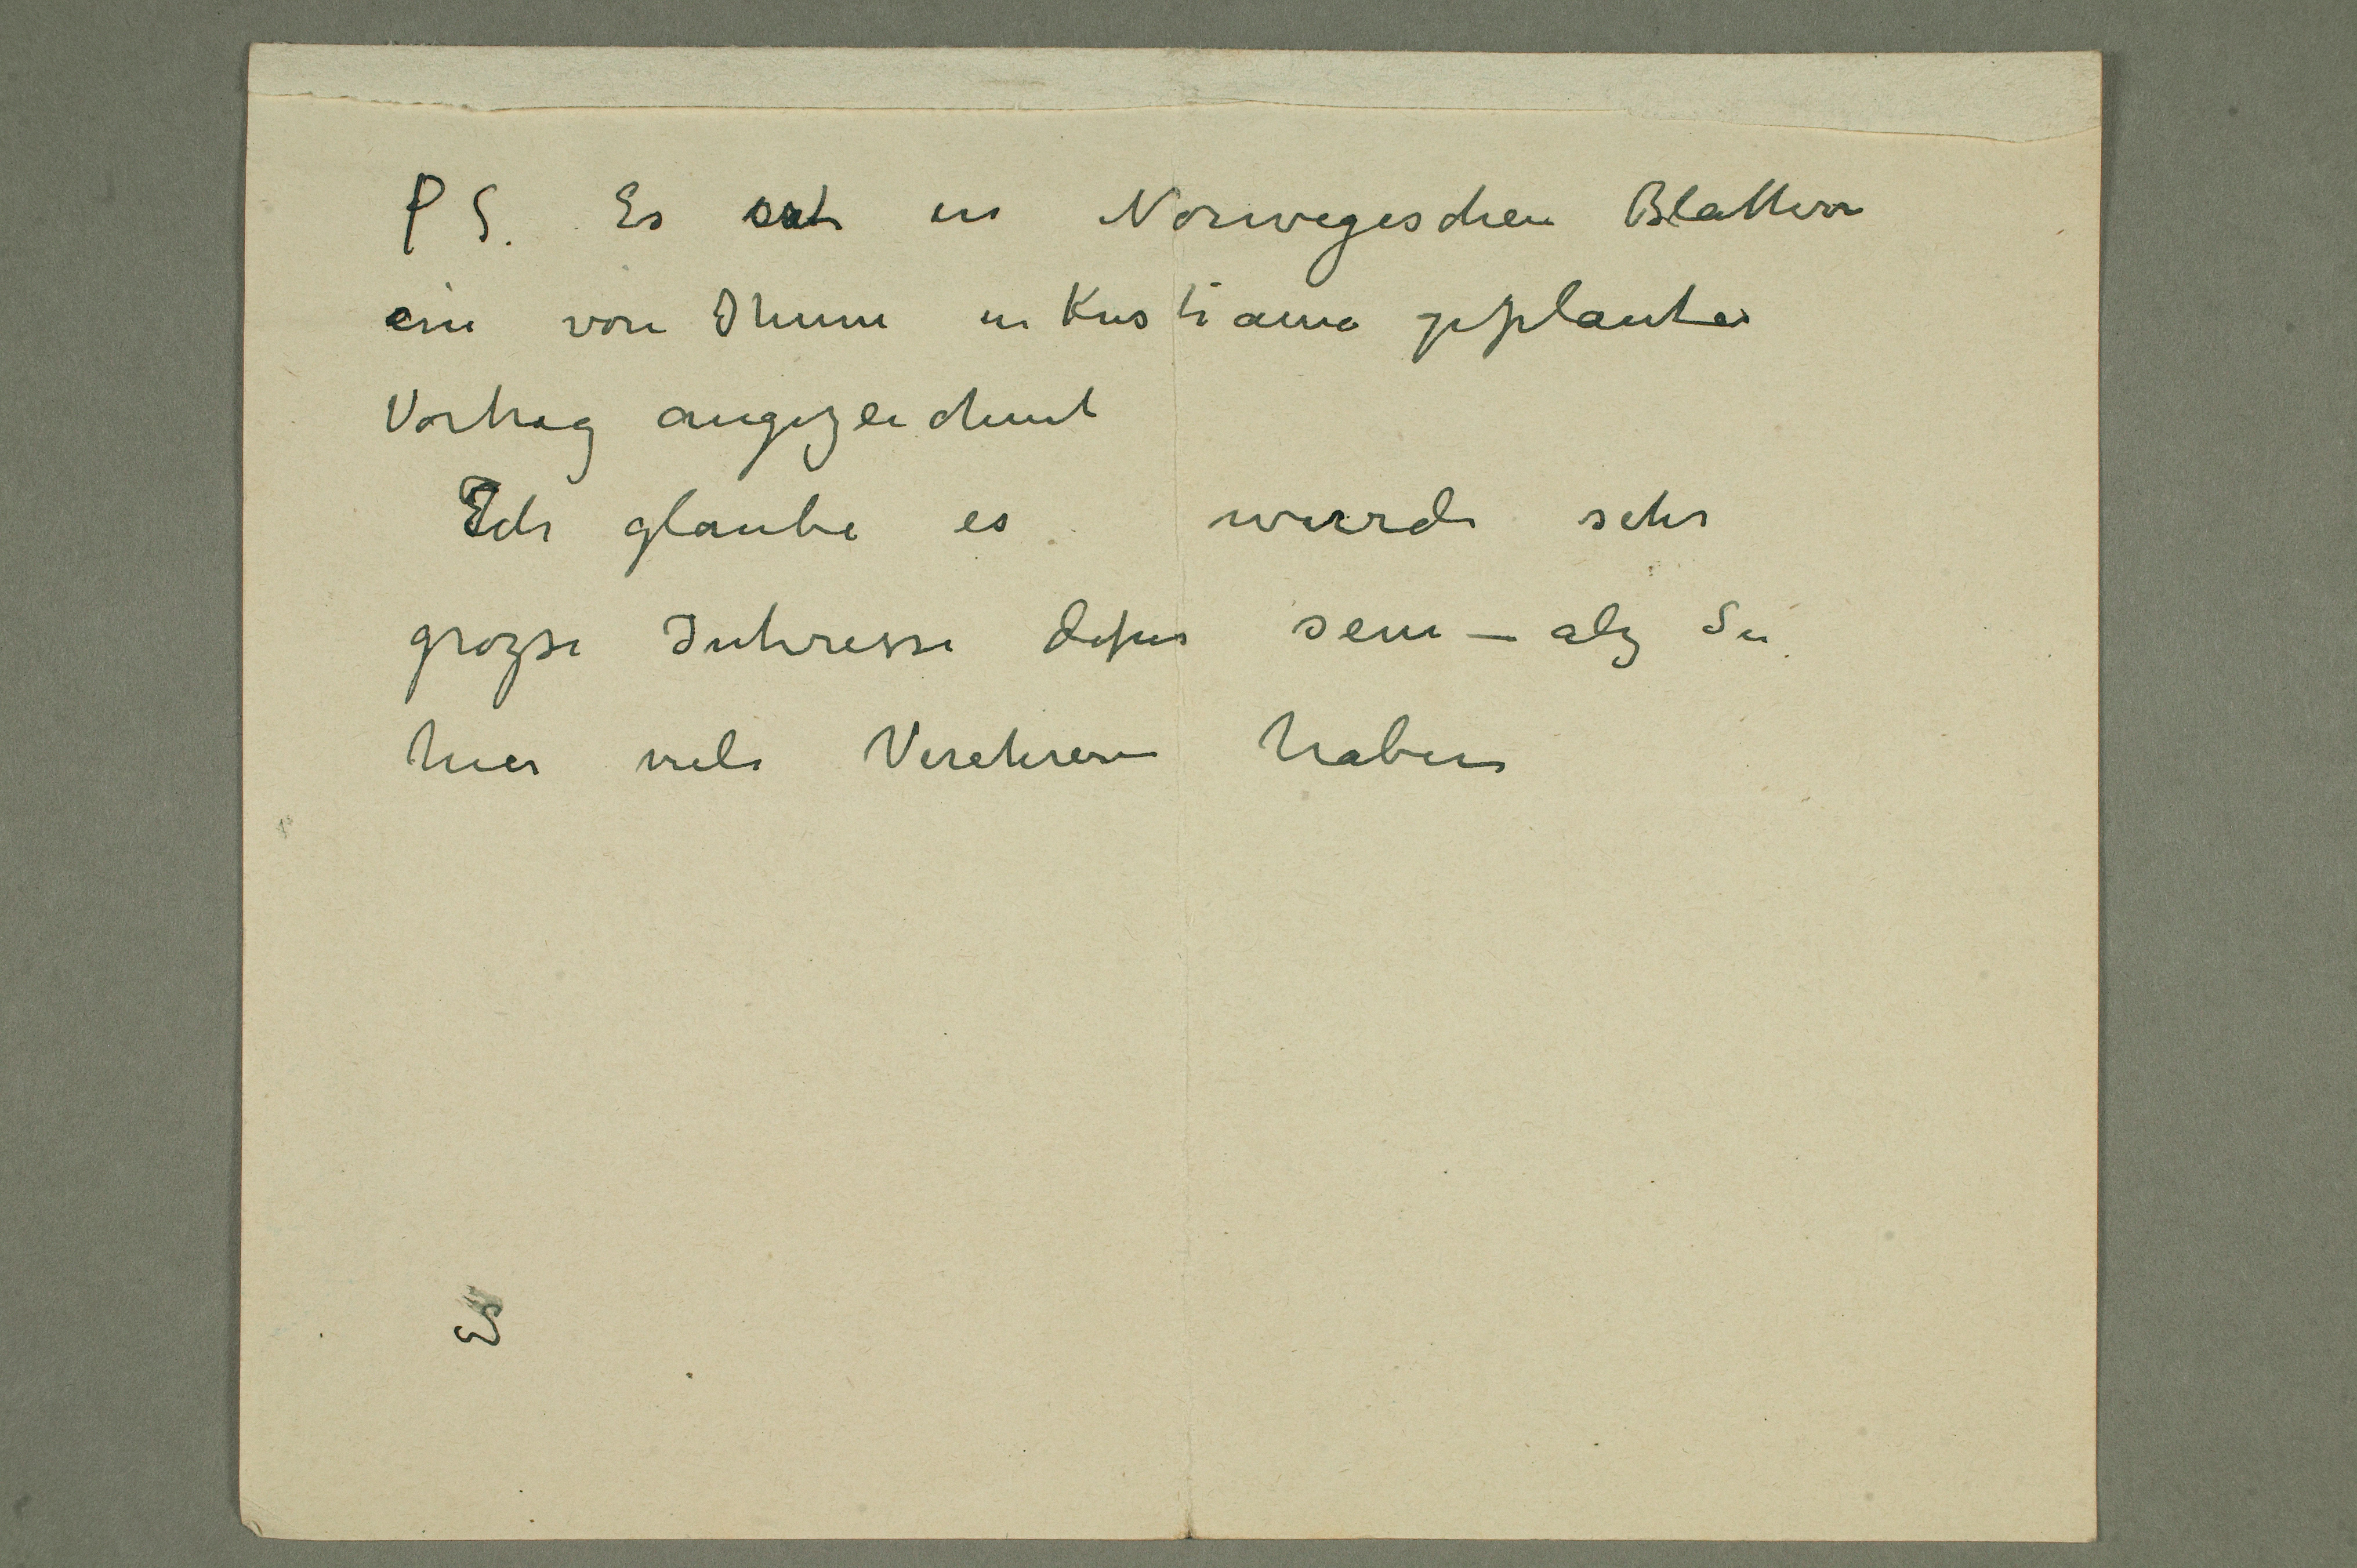 PS. Es ist in Norwegeschen Blattern
ein von Ihnen in Kristiania geplanter
Vortrag angezeichnet
Ich glaube es wurde sehr
grozse Interesse dafur sein – alz Sie
hier viele Verehrern haben
Es